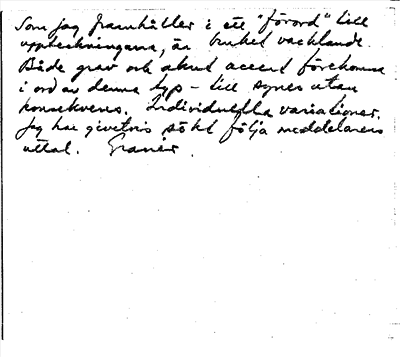 Som jag framhåller i ett "förord" till
uppteckningarna, är bruket vacklande.
Både grav och akut accent förekomma
i ord av denna typ – till synes utan
konsekvens. Individuella variationer.
Jag har givetvis sökt följa meddelarens
uttal. Granér.